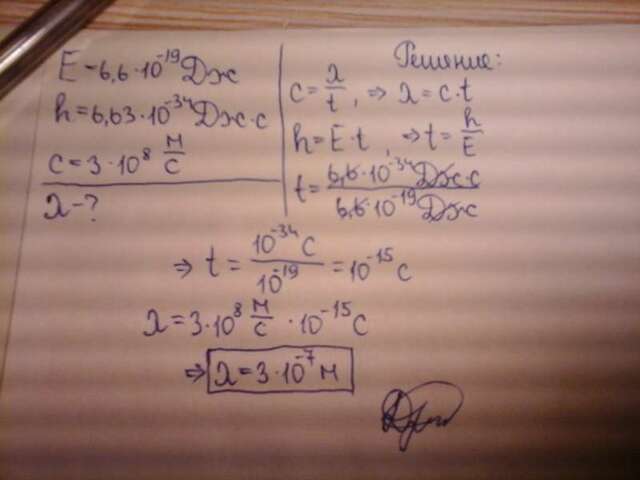 E - 6,6·10⁻¹⁹ Дж
h = 6,63·10⁻³⁴ Дж·с
c = 3·10⁸ м/с
λ - ?
Решение:
c = λ/t, ⇒ λ = c·t
h = E·t, ⇒ t = h/E
t = 6,6·10⁻³⁴ Дж·с / 6,6·10⁻¹⁹ Дж
⇒ t = 10⁻³⁴ с / 10⁻¹⁹ = 10⁻¹⁵ с
λ = 3·10⁸ м/с · 10⁻¹⁵ с
⇒ λ = 3·10⁻⁷ м